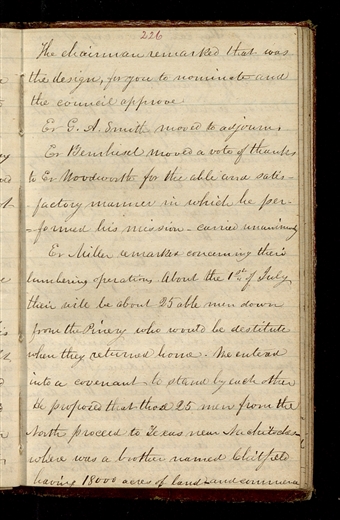 226
The chairman remarked that was
the design, for you to nominate and
the council approve
Er G. A. Smith moved to adjourn.
Er Bernhisel moved a vote of thanks
to Er Woodworth for the able and satis-
factory manner in which he per-
-formed his mission - carried unanimously
Er Miller remarked concerning their
lumbering operations. About the 1st of July
their will be about 25 able men down
from the Pinery who would be destitute
when they returned home. We entered
into a covenant to stand by each other
He proposed that those 25 men from the
North proceed to Texas near
where was a brother named Chilfield
having 18000 acres of land - and commence